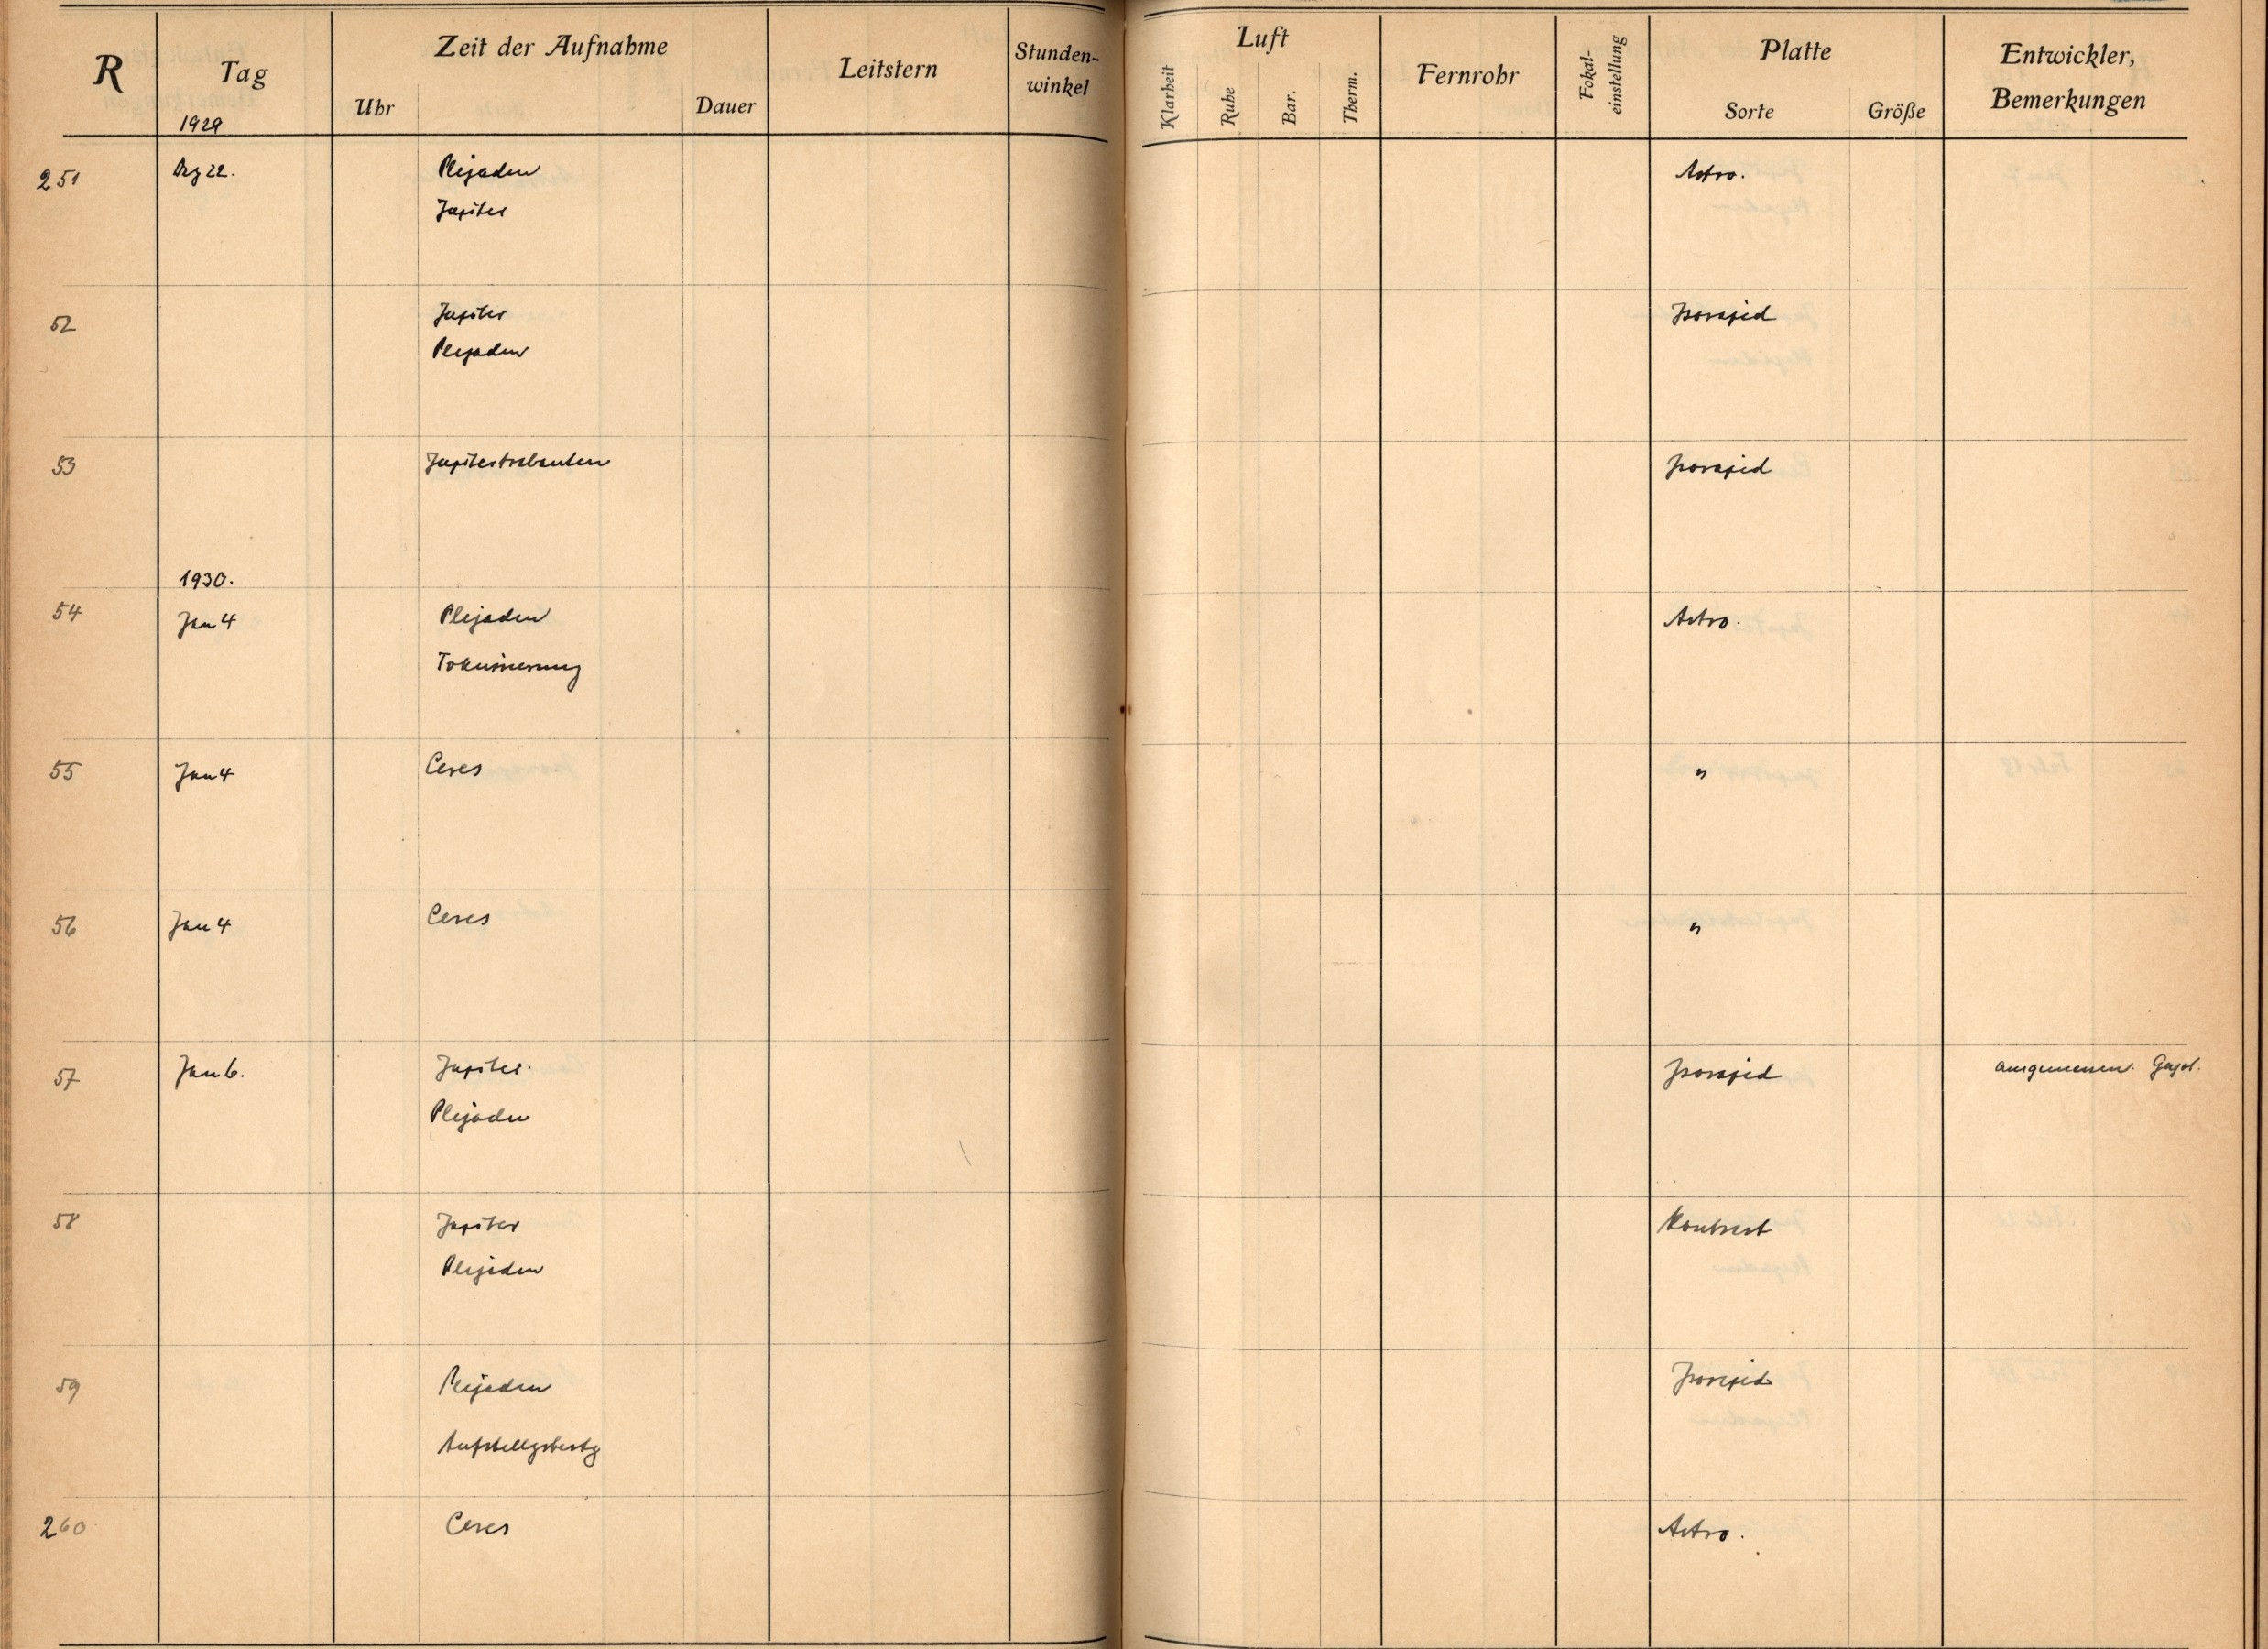 R Tag Zeit der Aufnahme Leitstern Stunden-
winkel Luft Fernrohr Fokal-
einstellung Platte Entwickler,
Bemerkungen
Uhr Dauer Klarheit Ruhe Bar. Therm. Sorte Größe
1929
251 Dez 22. Plejaden Astro.
Jupiter
52 Jupiter Isorapid
Plejaden
53 Jupitertrabanten Isorapid
1930.
54 Jan 4 Plejaden Astro.
Fokussierung
55 Jan 4 Ceres "
56 Jan 4 Ceres "
57 Jan 6. Jupiter. Isorapid ausgemessen.
Plejaden
58 Jupiter Kontrast
Plejaden
59 Plejaden Isorapid
Aufstellgsbestg
260 Ceres Astro.